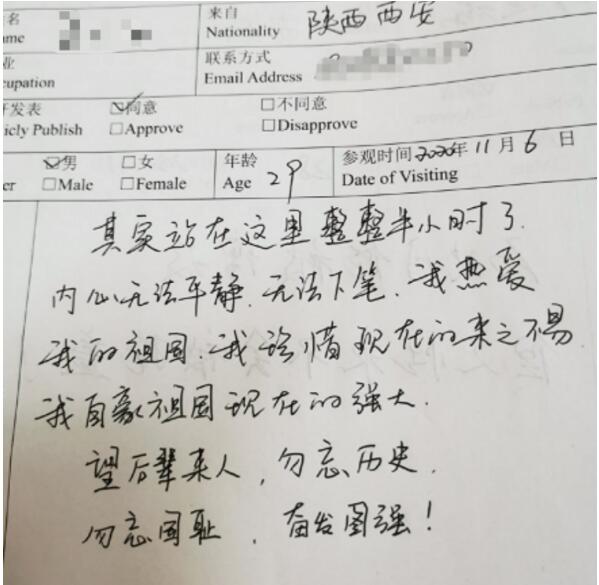 名 来自
ame Nationality 陕西西安
业 联系方式
cupation Email Address
开发表 ☑同意 □不同意
icly Publish □Approve □Disapprove
☑男 □女 年龄 参观时间 2020年11月6日
er □Male □Female Age 29 Date of Visiting
其实站在这里整整半小时了.
内心无法平静.无法下笔.我热爱
我的祖国.我珍惜现在的来之不易
我自豪祖国现在的强大.
望后辈来人,勿忘历史.
勿忘国耻,奋发图强!